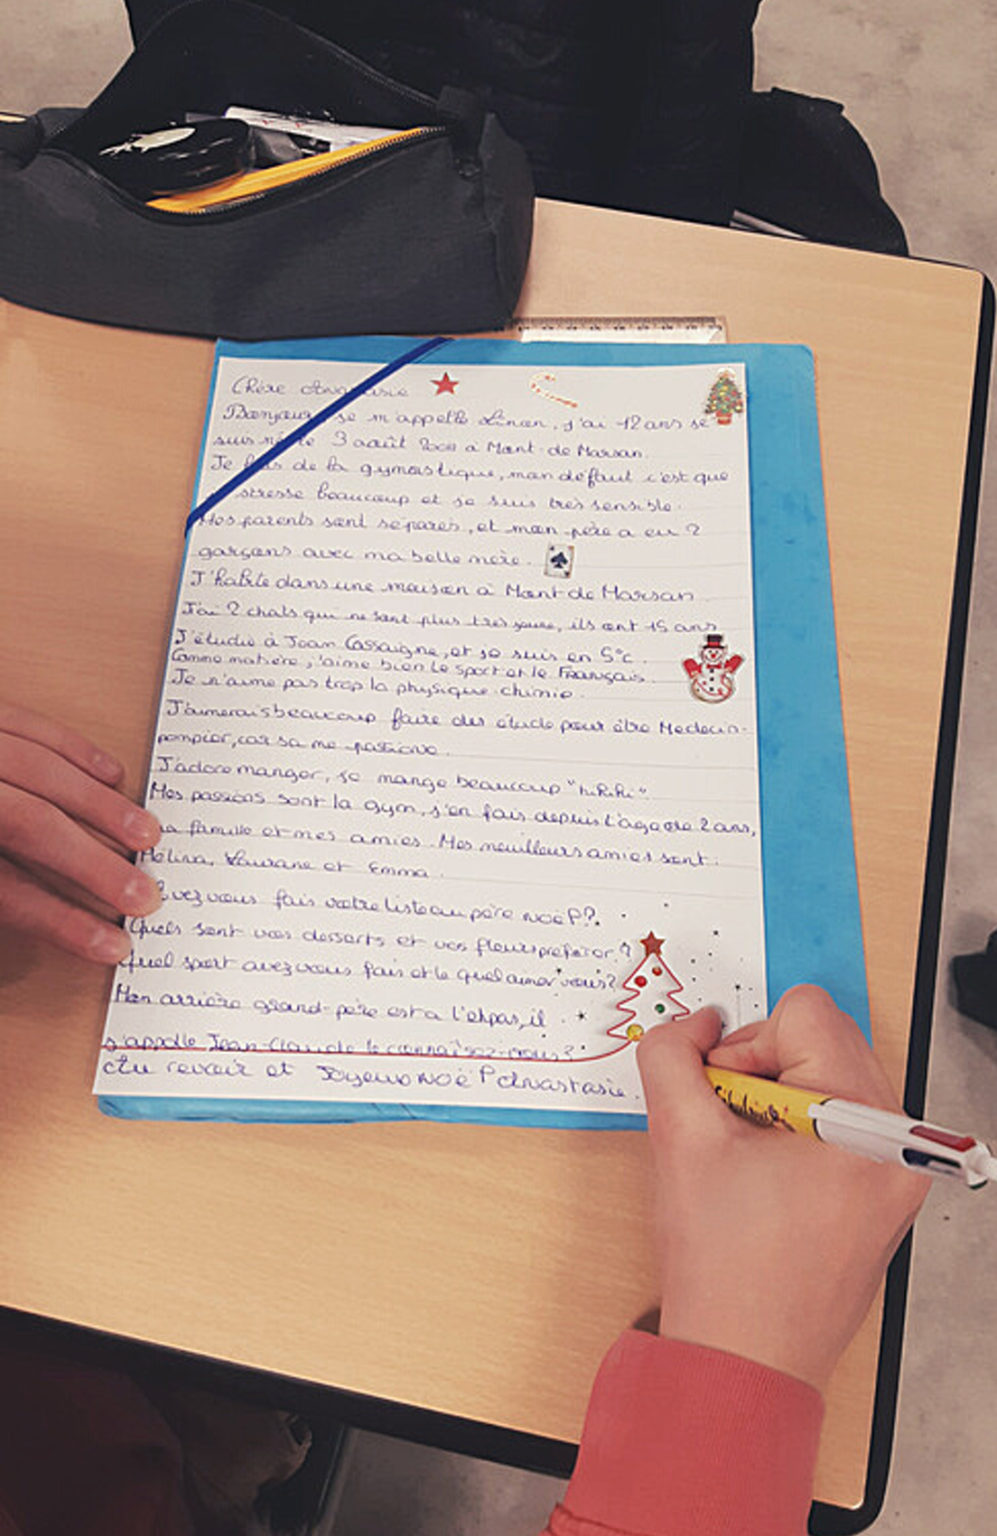 Chère Anastasie
Bonjour je m'appelle Linon, j'ai 12 ans je
suis née le 3 août à Mont-de Marsan.
Je fais de la gymastique, mon défaut c'est que
stresse beaucoup et je suis très sensible.
Mes parents sont séparés, et mon père a eu 2
garçons avec ma belle mère.
J'habite dans une maison à Mont de Marsan
J'ai 2 chats qui ne sont plus très jeune, ils ont 15 ans
J'étudie à Jean Cassaigne, et je suis en 5°c.
Comme matière, j'aime bien le sport et le Français.
Je n'aime pas trop la physique-chimie.
J'aimerais beaucoup faire des étude pour être Medecin-
pompier, car sa me passione.
J'adore manger, je mange beaucoup "hihihi".
Mes passions sont la gym, j'en fais depuis l'age de 2 ans,
ma famille et mes amies. Mes meilleurs amies sont:
Mélina, Laurane et Emma.
Avez vous fais votre liste au père noël??
Quels sont vos desserts et vos fleurs préférer?
Quel sport avez vous fais et le quel aimer vous?
Mon arrière grand-père est a l'ehpas, il
s'appelle Jean-Claude le connaisez-vous?
Au revoir et Joyeux Noël Anastasie.